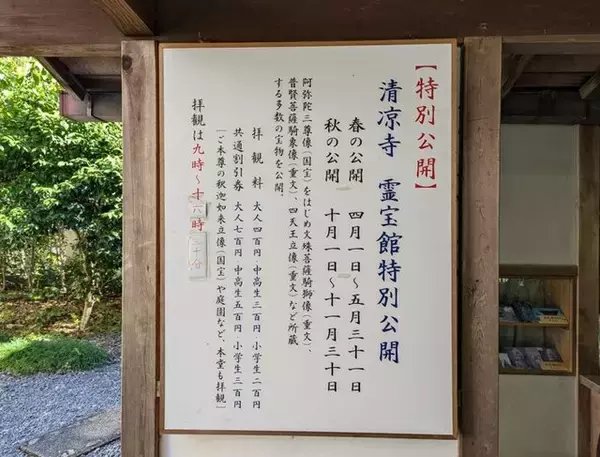 【特別公開】
清凉寺 霊宝館特別公開
春の公開 四月一日～五月三十一日
秋の公開 十月一日～十一月三十日
阿弥陀三尊像(国宝)をはじめ文殊菩薩騎獅像(重文)、
普賢菩薩騎象像(重文)、四天王立像(重文)など所蔵
する多数の宝物を公開。
拝観料 大人四百円 中高生三百円 小学生二百円
共通割引券 大人七百円 中高生五百円 小学生三百円
「ご本尊の釈迦如来立像(国宝)や庭園など、本堂も拝観」
拝観は九時～十六時